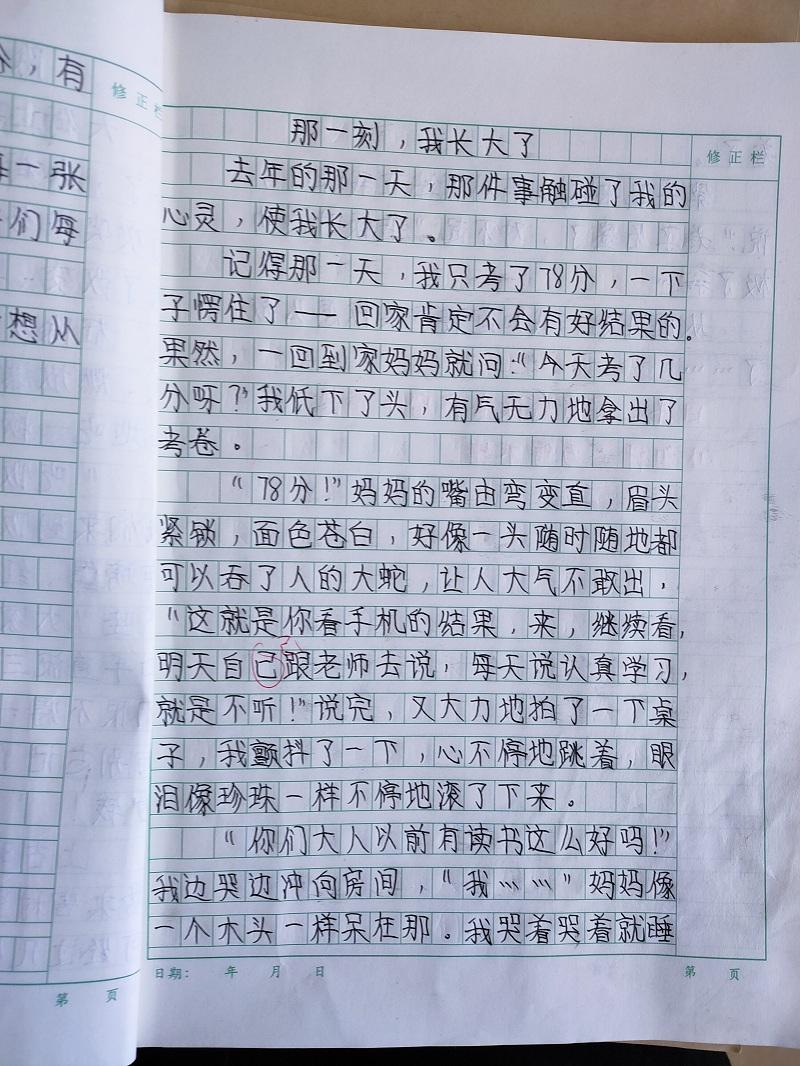 ，有
修正栏
一张
们每
想从
第 页
那一刻，我长大了
修正栏
去年的那一天，那件事触碰了我的
心灵，使我长大了。
记得那一天，我只考了78分，一下
子愣住了——回家肯定不会有好结果的。
果然，一回到家妈妈就问：“今天考了几
分呀？”我低下了头，有气无力地拿出了
考卷。
“78分！”妈妈的嘴由弯变直，眉头
紧锁，面色苍白，好像一头随时随地都
可以吞了人的大蛇，让人大气不敢出，
“这就是你看手机的结果，来，继续看，
明天自已跟老师去说，每天说认真学习，
就是不听！”说完，又大力地拍了一下桌
子，我颤抖了一下，心不停地跳着，眼
泪像珍珠一样不停地滚了下来。
“你们大人以前有读书这么好吗！”
我边哭边冲向房间，“我……”妈妈像
一个木头一样呆在那。我哭着哭着就睡
日期： 年 月 日
第 页